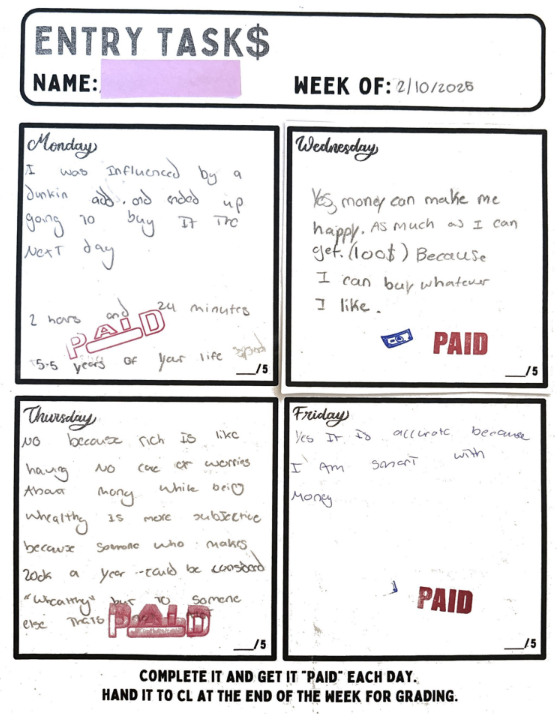 ENTRY TASK$
NAME:
WEEK OF: 2/10/2025
Monday
I was influenced by a
dunkin add. and ended up
going to buy it the
next day
2 hors and 24 minutes
PAID
5.5 years of your life
___/5
Wednesday
Yes, money can make me
happy. As much as I can
get. (100$) Because
I can buy whatever
I like.
PAID
___/5
Thursday
NO because rich is like
having no care or worries
About money while being
whealthy is more subjective
because somone who makes
200k a year could be
"whealthy" but to somene
else thats
PAID
___/5
Friday
Yes It is accurate because
I Am smart with
money
PAID
___/5
COMPLETE IT AND GET IT "PAID" EACH DAY.
HAND IT TO CL AT THE END OF THE WEEK FOR GRADING.